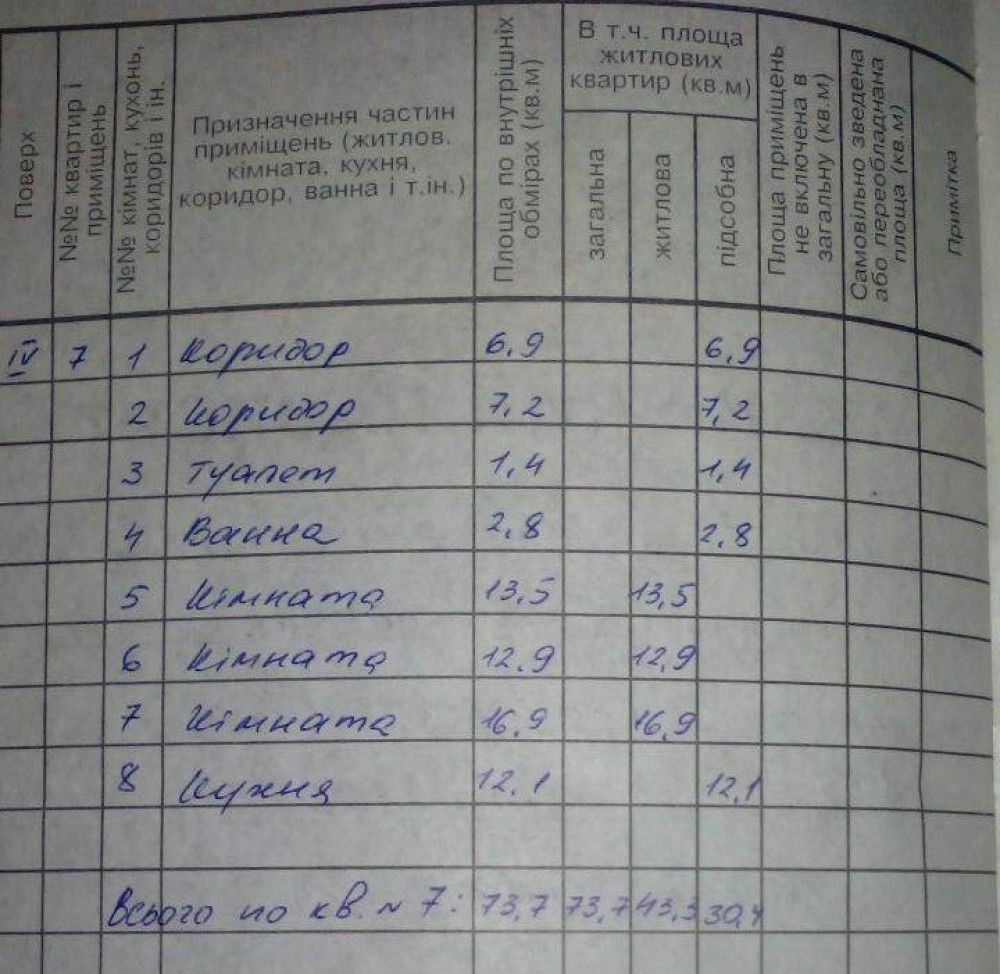 Поверх
№№ квартир і
приміщень
№№ кімнат, кухонь,
коридорів і ін.
Призначення частин
приміщень (житлов.
кімната, кухня,
коридор, ванна і т.ін.)
Площа по внутрішніх
обмірах (кв.м)
В т.ч. площа
житлових
квартир (кв.м)
загальна
житлова
підсобна
Площа приміщень
не включена в
загальну (кв.м)
Самовільно зведена
або переобладнана
площа (кв.м)
Примітка
IV 7 1 Коридор 6,9 6,9
2 Коридор 7,2 7,2
3 Туалет 1,4 1,4
4 Ванна 2,8 2,8
5 Кімната 13,5 13,5
6 Кімната 12,9 12,9
7 Кімната 16,9 16,9
8 Кухня 12,1 12,1
Всього по кв. № 7: 73,7 73,7 43,3 30,4